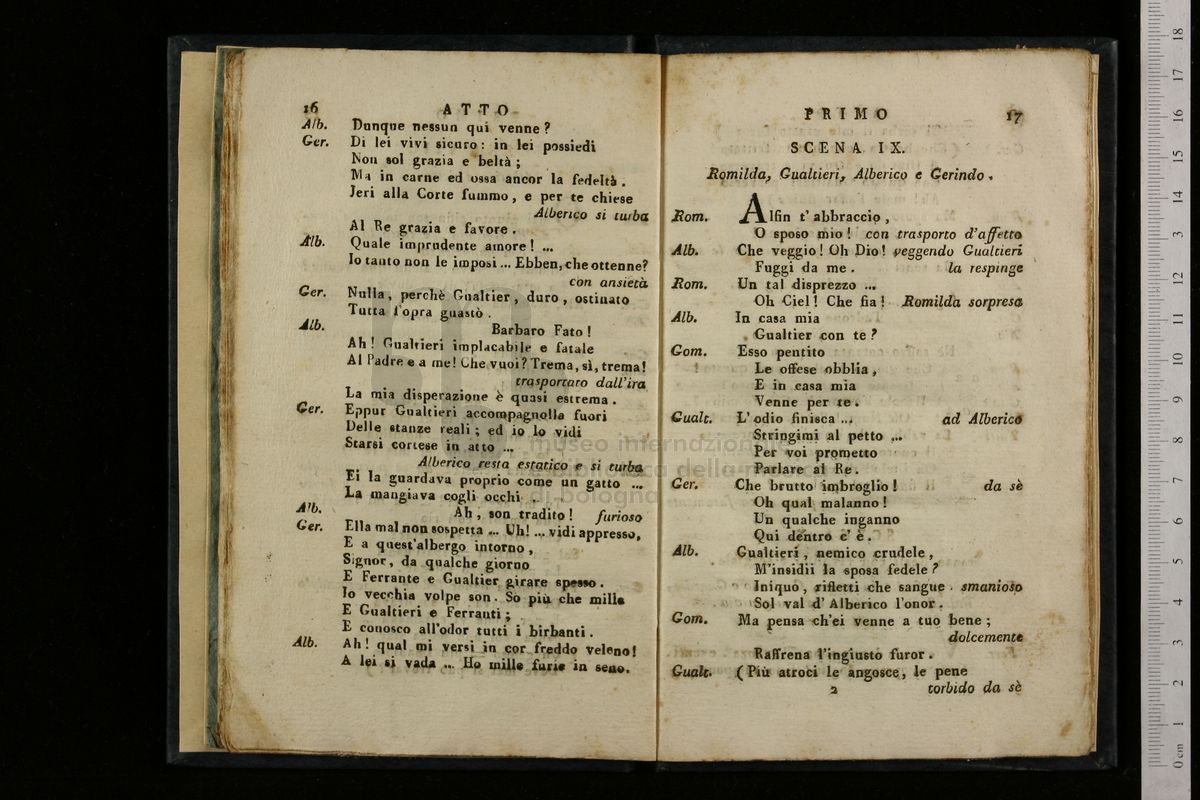 16 ATTO
Alb. Dunque nessun qui venne?
Ger. Di lei vivi sicuro: in lei possiedi
Non sol grazia e beltà;
Ma in carne ed ossa ancor la fedeltà.
Jeri alla Corte fummo, e per te chiese
Alberico si turba
Al Re grazia e favore.
Alb. Quale imprudente amore! ...
Io tanto non le imposi ... Ebben, che ottenne?
con ansietà
Ger. Nulla, perchè Gualtier, duro, ostinato
Tutta l'opra guastò.
Alb. Barbaro Fato!
Ah! Gualtieri implacabile e fatale
Al Padre e a me! Che vuoi? Trema, sì, trema!
trasportato dall'ira
La mia disperazione è quasi estrema.
Ger. Eppur Gualtieri accompagnolla fuori
Delle stanze reali; ed io lo vidi
Starsi cortese in atto ...
Alberico resta estatico e si turba
Ei la guardava proprio come un gatto ...
La mangiava cogli occhi ..
Alb. Ah, son tradito! furioso
Ger. Ella mal non sospetta ... Uh! ... vidi appresso,
E a quest'albergo intorno,
Signor, da qualche giorno
E Ferrante e Gualtier girare spesso.
Io vecchia volpe son. So più che mille
E Gualtieri e Ferranti;
E conosco all'odor tutti i birbanti.
Alb. Ah! qual mi versi in cor freddo veleno!
A lei si vada ... Ho mille furie in seno.
PRIMO 17
SCENA IX.
Romilda, Gualtieri, Alberico e Gerindo.
Rom. Alfin t' abbraccio,
O sposo mio! con trasporto d'affetto
Alb. Che veggio! Oh Dio! veggendo Gualtieri
Fuggi da me. la respinge
Rom. Un tal disprezzo ...
Oh Ciel! Che fia! Romilda sorpresa
Alb. In casa mia
Gualtier con te?
Gom. Esso pentito
Le offese obblia,
E in casa mia
Venne per te.
Gualt. L'odio finisca ... ad Alberico
Stringimi al petto ...
Per voi prometto
Parlare al Re.
Ger. Che brutto imbroglio! da sè
Oh qual malanno!
Un qualche inganno
Qui dentro c' è.
Alb. Gualtieri, nemico crudele,
M'insidii la sposa fedele?
Iniquo, rifletti che sangue smanioso
Sol val d' Alberico l'onor.
Gom. Ma pensa ch'ei venne a tuo bene;
dolcemente
Raffrena l'ingiusto furor.
Gualt. (Più atroci le angosce, le pene
2 torbido da sè
museo internazionale
e biblioteca della musica
di bologna
0 cm 1 2 3 4 5 6 7 8 9 10 11 12 13 14 15 16 17 18